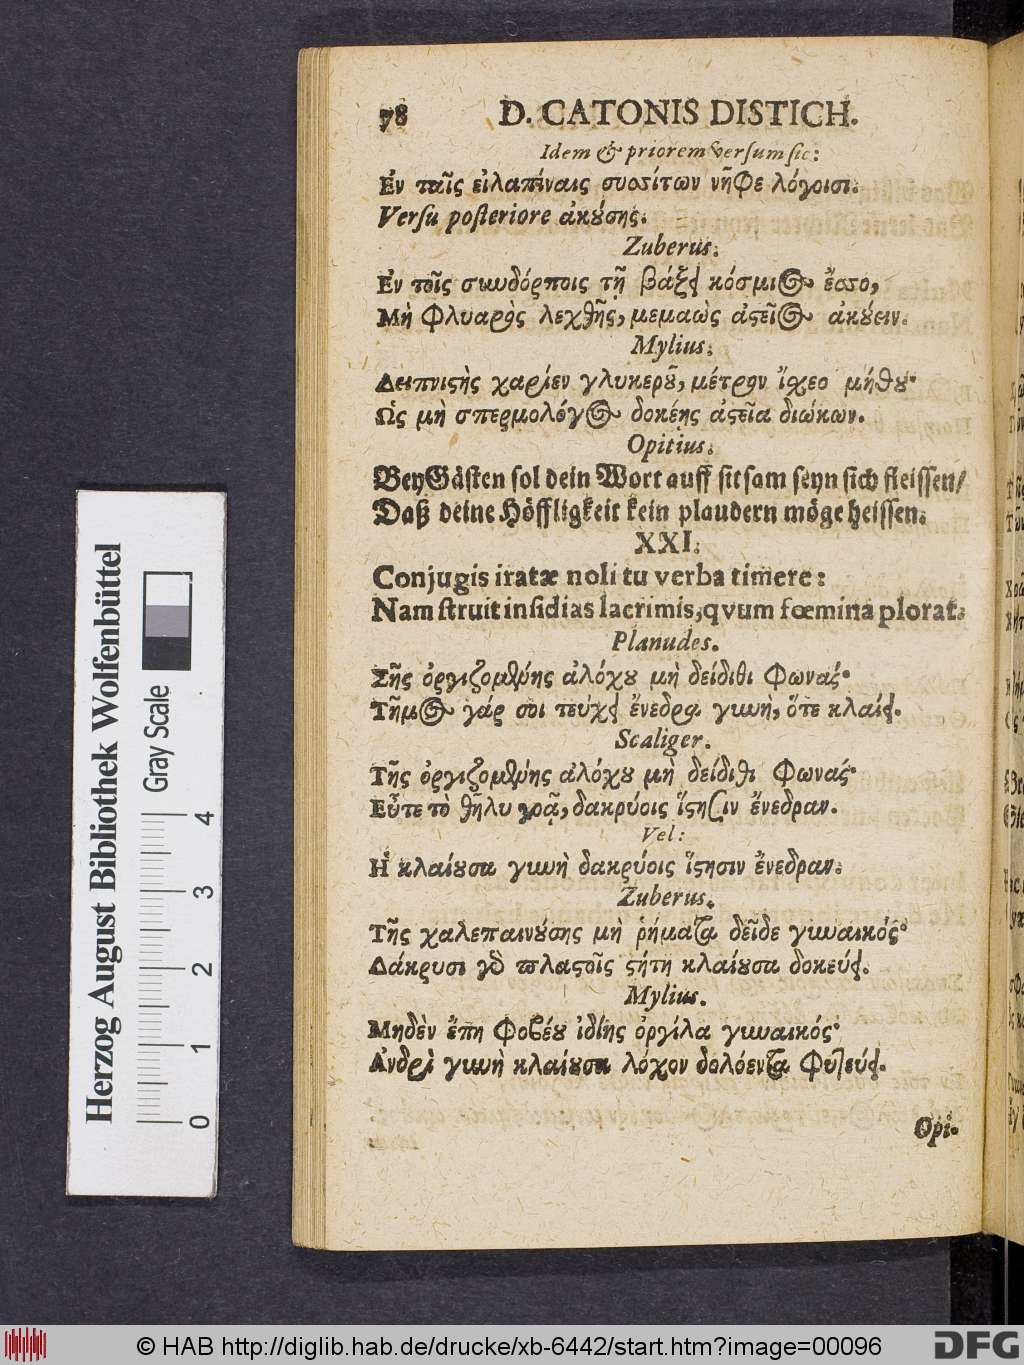 78 D. CATONIS DISTICH.
Idem & priorem versum sic:
Ἐν ταῖς εἰλαπίναις συσσίτων νῆφε λόγοισι.
Versu posteriore ἀκούσῃς.
Zuberus.
Ἐν τοῖς συνδόρποις τῇ βάξει κόσμιος ἔσσο,
Μὴ φλυαρὸς λεχθῇς, μεμαὼς ἀστεῖος ἀκούειν.
Mylius.
Δειπνιστὴς χαρίεν γλυκεροῦ, μέτρον ἴσχεο μύθου·
Ὡς μὴ σπερμολόγος δοκέῃς ἀστεῖα διώκων.
Opitius.
Bey Gästen sol dein Wort auff sitsam seyn sich fleissen/
Daß deine Höffligkeit kein plaudern möge heissen.
XXI.
Conjugis iratæ noli tu verba timere:
Nam ſtruit inſidias lacrimis, qvum fœmina plorat.
Planudes.
Σῆς ὀργιζομένης ἀλόχου μὴ δείδιθι φωνάς·
Τῆμος γάρ σοι τεύχει ἔνεδρα γυνὴ, ὅτε κλαίει.
Scaliger.
Τῆς ὀργιζομένης ἀλόχου μὴ δείδιθι φωνάς·
Εὖτε τὸ θῆλυ γοᾷ, δακρύοις ἵστησιν ἔνεδραν.
Vel:
Ἡ κλαίουσα γυνὴ δακρύοις ἵστησιν ἔνεδραν.
Zuberus.
Τῆς χαλεπαινούσης μὴ ῥήματα δεῖδε γυναικός·
Δάκρυσι γὸ πλαστοῖς κλαίουσα δοκεύει.
Mylius.
Μηδὲν ἔπη φοβέου ἰδίης ὀργίλα γυναικός·
Ἀνδρὶ γυνὴ κλαίουσα λόχον δολόεντα φυτεύει.
Opi-
Herzog August Bibliothek Wolfenbüttel
Gray Scale
0 1 2 3 4
© HAB http://diglib.hab.de/drucke/xb-6442/start.htm?image=00096
DFG